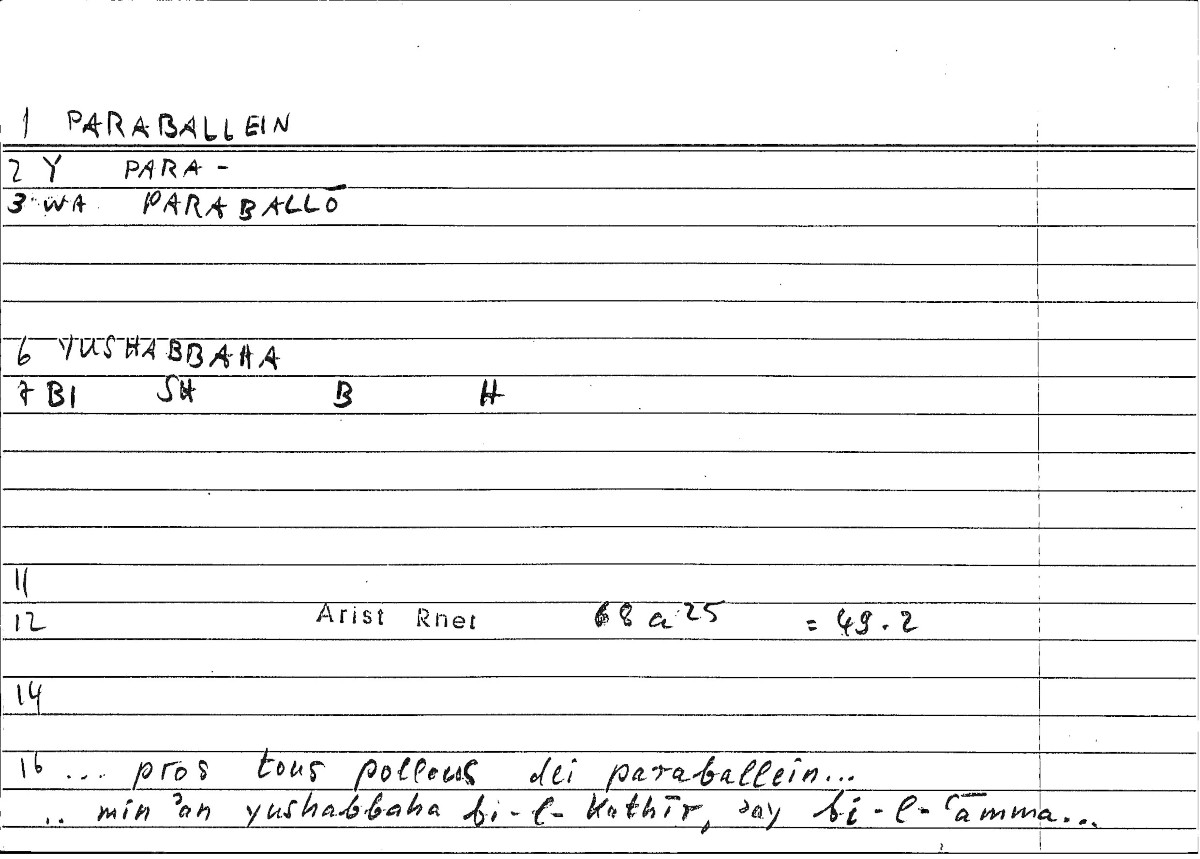 1 PARABALLEIN
2 Y PARA -
3 WA PARABALLŌ
6 YUSHABBAHA
7 BI SH B H
11
12 Arist Rhet 68 a 25 = 49.2
14
16 ... pros tous pollous dei paraballein...
.. min ʾan yushabbaha bi-l-Kathīr, ʾay bi-l-ʿāmma...